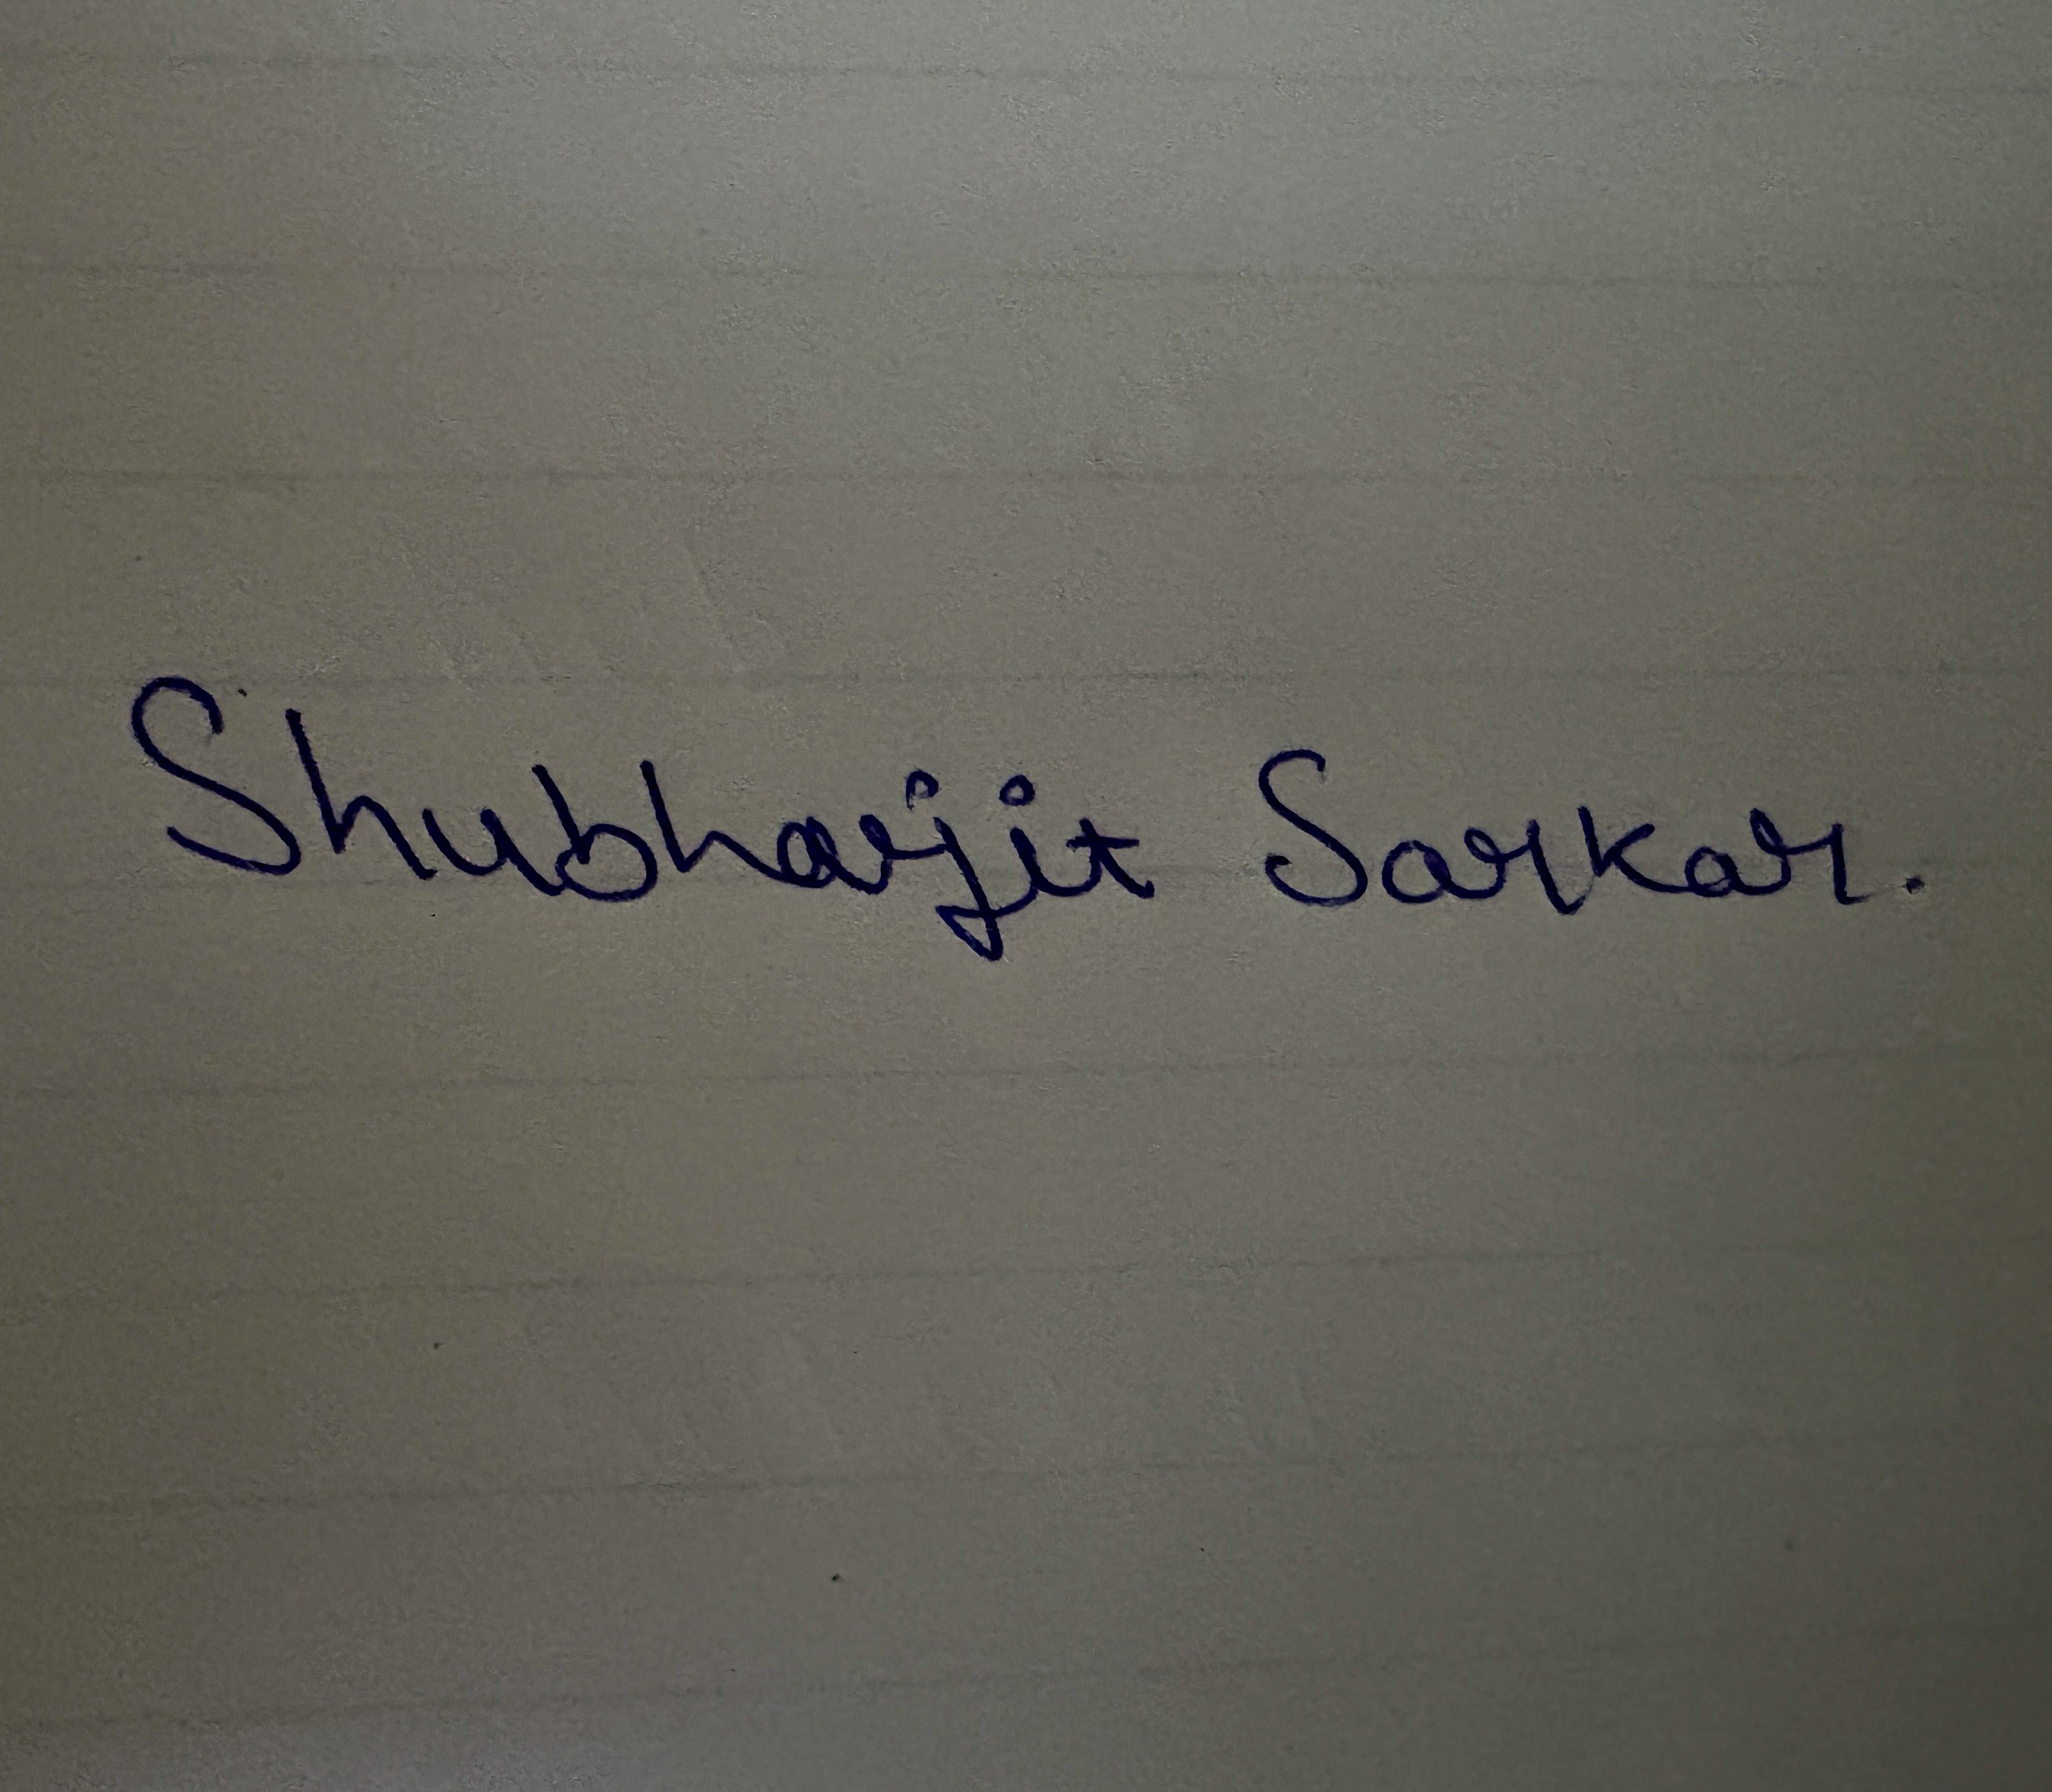 Shubhajit Sarkar.